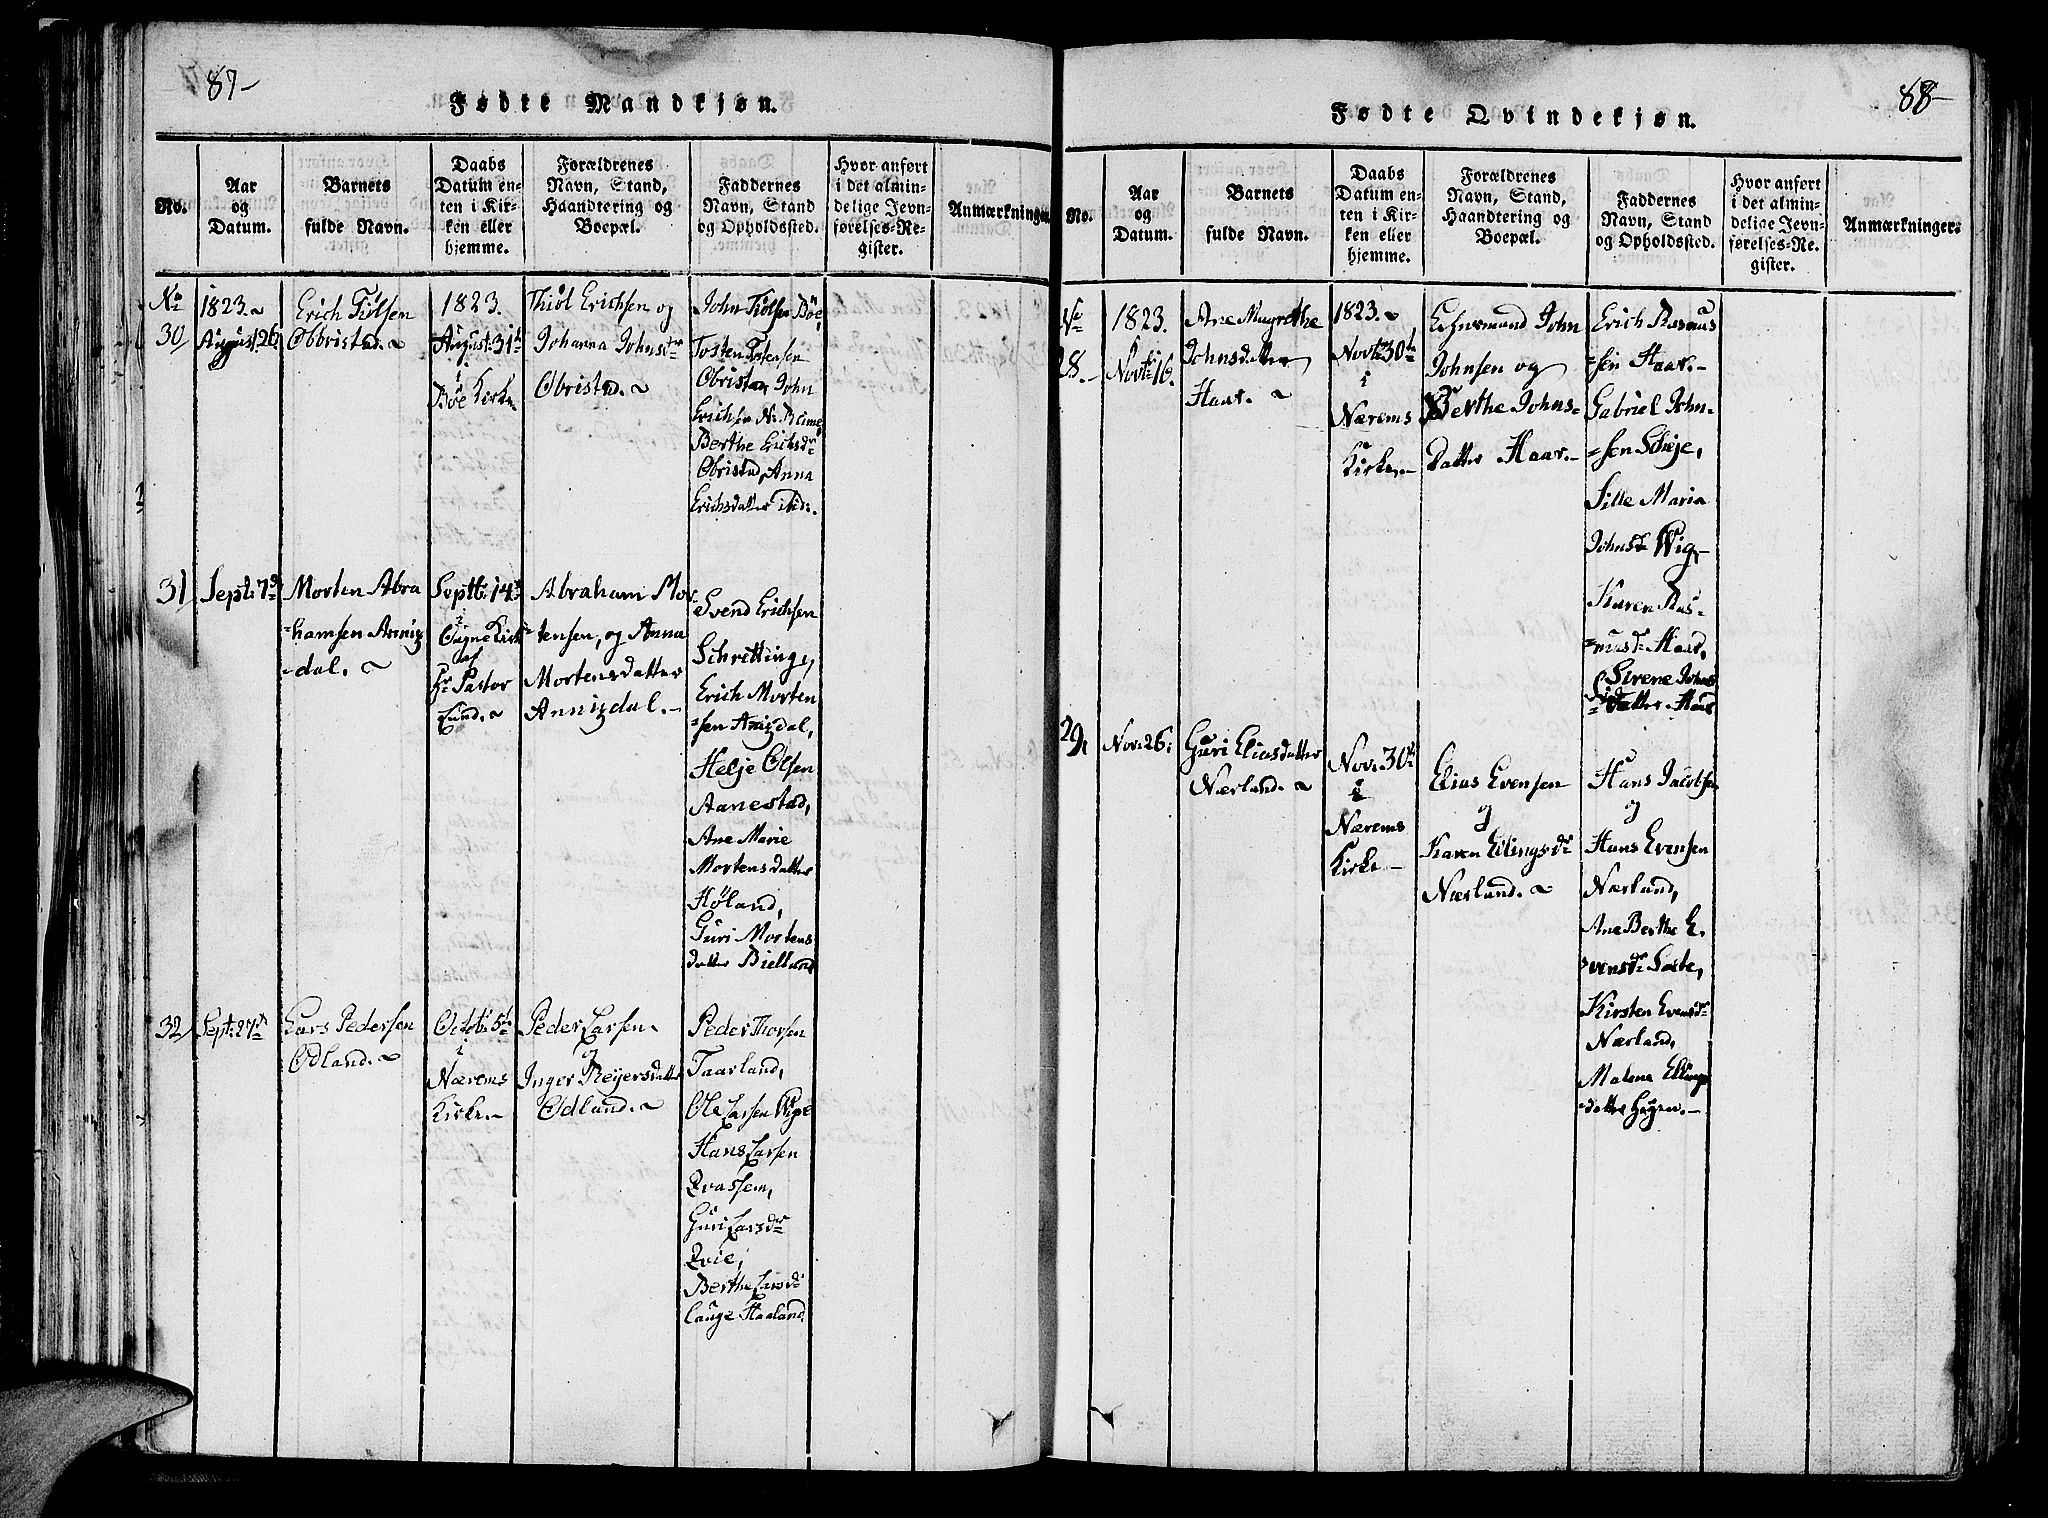 87-
Fødte Mandkjøn.
No.
Aar
og
Datum.
Barnets
fulde Navn.
Daabs
Datum en-
ten i Kir-
ken eller
hjemme.
Forældrenes
Navn, Stand,
Haandtering og
Boepæl.
Faddernes
Navn, Stand
og Opholdssted.
Hvor anført
i det almin-
delige Jevn-
førelses-Re-
gister.
Anmærkninger
No
30
1823.
August. 26.
Erich Tiølsen
Obbristad.
1823.
August: 31te
i
Bøe Kirke
Thiøl Erichsen og
Johanna Johnsdtr
Obristad.
John Tiølsen Bøe,
Tosten Tostensen
Obristad, John
Erichsen N. Reime,
Berthe Erichsdr
Obristad, Anna
Erichsdatter ibid:.
31
Sept: 7de
Morten Abra
=hamsen Anniz
=dal.
Septb: 14de
i
Ougne Kirk
af
Hr Pastor
Lund.
Abraham Mor-
=tensen, og Anna
Mortensdatter
Annizdal.-
Svend Erichsen
Schrettinge,
Erich Morten
=sen Anizdal,
Helje Olsen
Aanestad,
Ane Marie
Mortensdatter
Høland,
Guri Mortens
datter Bielland
32
Sept: 27de
Lars Pedersen
Odland.
Octob: 5te
i
Nærems
Kirke.
Peder Larsen
og
Inger Reyersdatter
Odland.
Peder Thorsen
Taarland,
Ole Larsen Wigre
Hans Larsen
Qvassem,
Guri Larsdr
Qvie,
Berthe Larsdr
Lauge Haaland
88-
Fødte Qvindekjøn.
No.
Aar
og
Datum.
Barnets
fulde Navn.
Daabs
Datum en-
ten i Kir-
ken eller
hjemme.
Forældrenes
Navn, Stand,
Haandtering og
Boepæl.
Faddernes
Navn, Stand
og Opholdssted.
Hvor anført
i det almin-
delige Jevn-
førelses-Re-
gister.
Anmærkninger.
No
28.
1823.
Novb: 16.
Ane Magrethe
Johnsdatter
Haar.
1823.
Novb: 30te
i
Nærems
Kirke.-
Lehnsmand John
Johnsen og
Berthe Johns-
datter Haar.-
Erich Rasmus
=sen Haar.-
Gabriel John-
=sen
Sille Maria
Johnsdr Wig,
Karen Ras-
=musdr Haar,
Sirene Johns
=datter Haar
29.
Nov: 26:
Guri Eliasdatter
Nærland.
Nov: 30te
i
Nærems
Kirke-
Elias Evensen
og
Karen Ellingsdr
Nærland.
Hans Jacobsen
og
Hans Evensen
Nærland,
Ane Berthe E-
=vensdr
Kirsten Evensdr
Nærland,
Malene Ellings
=datter